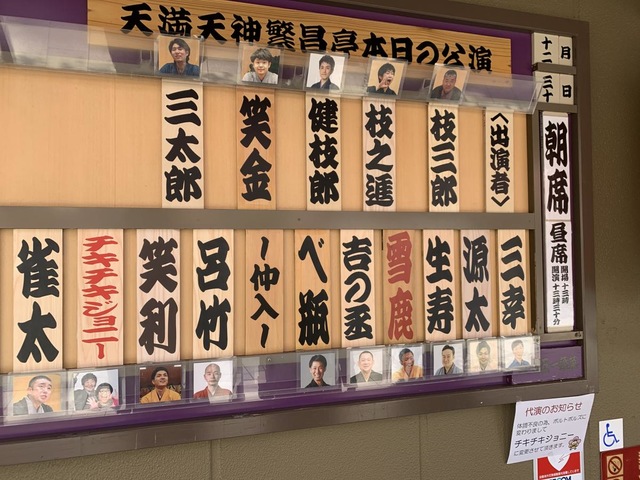 天満天神繁昌亭本日の公演
十二月
三十日
朝席
昼席
開場 十三時
開演 十三時三十分
〈出演者〉
枝三郎
枝之進
健枝郎
笑金
三太郎
三幸
源太
生寿
雪鹿
吉の丞
べ瓶
ー仲入ー
呂竹
笑利
チキチキジョニー
雀太
代演のお知らせ
体調不良の為、ボルトボルズに
変わりまして
チキチキジョニー
に変更させて頂きます。